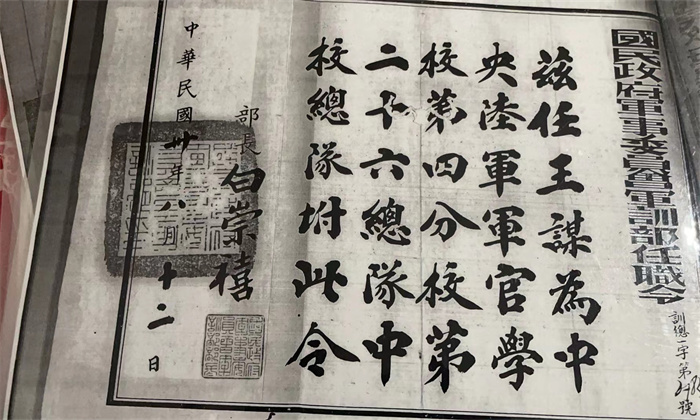 國民政府軍事委員會軍訓部任職令
訓總一字第號
茲任王謀為中
央陸軍軍官學
校第四分校第
二十六總隊中
校總隊坿此令
部長白崇禧
中華民國卅年八月十二日